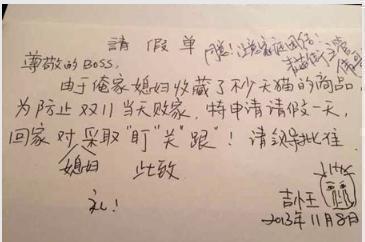 請假单
同意!注意家庭团结!
尊敬的BOSS,
由于俺家媳妇收藏了不少天猫的商品,
为防止双11当天败家,特申请请假一天,
回家对采取"盯"关"跟"!请领导批准
媳妇 此致
礼!
2013年11月8日